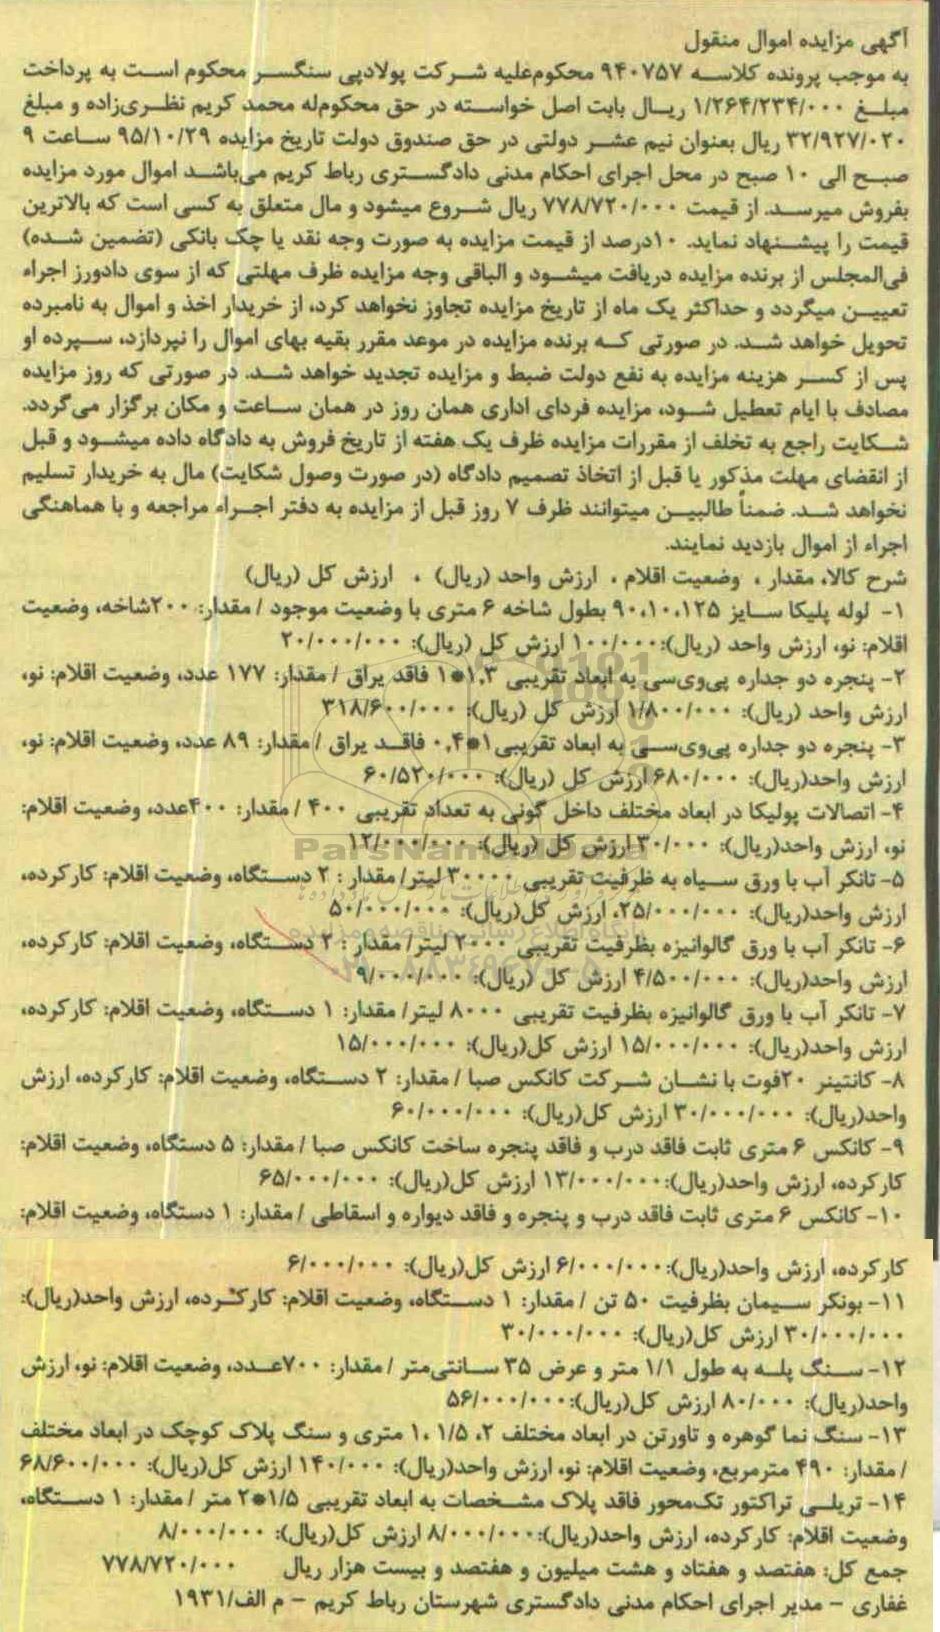 آگهی مزایده اموال منقول
به موجب پرونده کلاسه ۹۴۰۷۵۷ محکوم‌علیه شرکت پولادپی سنگسر محکوم است به پرداخت
مبلغ ۱/۲۶۴/۲۳۴/۰۰۰ ریال بابت اصل خواسته در حق محکوم‌له محمد کریم نظری‌زاده و مبلغ
۳۲/۹۲۷/۰۲۰ ریال بعنوان نیم عشر دولتی در حق صندوق دولت تاریخ مزایده ۹۵/۱۰/۲۹ ساعت ۹
صبح الی ۱۰ صبح در محل اجرای احکام مدنی دادگستری رباط کریم می‌باشد اموال مورد مزایده
بفروش میرسد. از قیمت ۷۷۸/۷۲۰/۰۰۰ ریال شروع میشود و مال متعلق به کسی است که بالاترین
قیمت را پیشنهاد نماید. ۱۰درصد از قیمت مزایده به صورت وجه نقد یا چک بانکی (تضمین شده)
فی‌المجلس از برنده مزایده دریافت میشود و الباقی وجه مزایده ظرف مهلتی که از سوی دادورز اجراء
تعیین میگردد و حداکثر یک ماه از تاریخ مزایده تجاوز نخواهد کرد، از خریدار اخذ و اموال به نامبرده
تحویل خواهد شد. در صورتی که برنده مزایده در موعد مقرر بقیه بهای اموال را نپردازد، سپرده او
پس از کسر هزینه مزایده به نفع دولت ضبط و مزایده تجدید خواهد شد. در صورتی که روز مزایده
مصادف با ایام تعطیل شود، مزایده فردای اداری همان روز در همان ساعت و مکان برگزار می‌گردد.
شکایت راجع به تخلف از مقررات مزایده ظرف یک هفته از تاریخ فروش به دادگاه داده میشود و قبل
از انقضای مهلت مذکور یا قبل از اتخاذ تصمیم دادگاه (در صورت وصول شکایت) مال به خریدار تسلیم
نخواهد شد. ضمناً طالبین میتوانند ظرف ۷ روز قبل از مزایده به دفتر اجراء مراجعه و با هماهنگی
اجراء از اموال بازدید نمایند.
شرح کالا، مقدار ، وضعیت اقلام ، ارزش واحد (ریال) ، ارزش کل (ریال)
۱- لوله پلیکا سایز ۹۰،۱۰،۱۲۵ بطول شاخه ۶ متری با وضعیت موجود / مقدار: ۲۰۰شاخه، وضعیت
اقلام: نو، ارزش واحد (ریال):۱۰۰/۰۰۰ ارزش کل (ریال): ۲۰/۰۰۰/۰۰۰
۲- پنجره دو جداره پی‌وی‌سی به ابعاد تقریبی ۱٫۳*۱ فاقد یراق / مقدار: ۱۷۷ عدد، وضعیت اقلام: نو،
ارزش واحد (ریال): ۱/۸۰۰/۰۰۰ ارزش کل (ریال): ۳۱۸/۶۰۰/۰۰۰
۳- پنجره دو جداره پی‌وی‌سی به ابعاد تقریبی ۱*۰٫۴ فاقد یراق / مقدار: ۸۹ عدد، وضعیت اقلام: نو،
ارزش واحد(ریال): ۶۸۰/۰۰۰ ارزش کل (ریال): ۶۰/۵۲۰/۰۰۰
۴- اتصالات پولیکا در ابعاد مختلف داخل گونی به تعداد تقریبی ۴۰۰ / مقدار: ۴۰۰عدد، وضعیت اقلام:
نو، ارزش واحد(ریال): ۳۰/۰۰۰ ارزش کل (ریال): ۱۲/۰۰۰/۰۰۰
ParsNamadData
۵- تانکر آب با ورق سیاه به ظرفیت تقریبی ۳۰۰۰۰ لیتر/ مقدار : ۲ دستگاه، وضعیت اقلام: کارکرده،
ارزش واحد(ریال): ۲۵/۰۰۰/۰۰۰، ارزش کل(ریال): ۵۰/۰۰۰/۰۰۰
۶- تانکر آب با ورق گالوانیزه بظرفیت تقریبی ۲۰۰۰ لیتر/ مقدار : ۲ دستگاه، وضعیت اقلام: کارکرده،
ارزش واحد(ریال): ۴/۵۰۰/۰۰۰ ارزش کل (ریال): ۹/۰۰۰/۰۰۰
۷- تانکر آب با ورق گالوانیزه بظرفیت تقریبی ۸۰۰۰ لیتر/ مقدار: ۱ دستگاه، وضعیت اقلام: کارکرده،
ارزش واحد(ریال): ۱۵/۰۰۰/۰۰۰ ارزش کل(ریال): ۱۵/۰۰۰/۰۰۰
۸- کانتینر ۲۰فوت با نشان شرکت کانکس صبا / مقدار: ۲ دستگاه، وضعیت اقلام: کارکرده، ارزش
واحد(ریال): ۳۰/۰۰۰/۰۰۰ ارزش کل(ریال): ۶۰/۰۰۰/۰۰۰
۹- کانکس ۶ متری ثابت فاقد درب و فاقد پنجره ساخت کانکس صبا / مقدار: ۵ دستگاه، وضعیت اقلام:
کارکرده، ارزش واحد(ریال):۱۳/۰۰۰/۰۰۰ ارزش کل(ریال): ۶۵/۰۰۰/۰۰۰
۱۰- کانکس ۶ متری ثابت فاقد درب و پنجره و فاقد دیواره و اسقاطی / مقدار: ۱ دستگاه، وضعیت اقلام:
کارکرده، ارزش واحد(ریال):۶/۰۰۰/۰۰۰ ارزش کل(ریال): ۶/۰۰۰/۰۰۰
۱۱- بونکر سیمان بظرفیت ۵۰ تن / مقدار: ۱ دستگاه، وضعیت اقلام: کارکرده، ارزش واحد(ریال):
۳۰/۰۰۰/۰۰۰ ارزش کل(ریال): ۳۰/۰۰۰/۰۰۰
۱۲- سنگ پله به طول ۱/۱ متر و عرض ۳۵ سانتی‌متر / مقدار: ۷۰۰عدد، وضعیت اقلام: نو، ارزش
واحد(ریال): ۸۰/۰۰۰ ارزش کل(ریال):۵۶/۰۰۰/۰۰۰
۱۳- سنگ نما گوهره و تاورتن در ابعاد مختلف ۲، ۱/۵ ،۱ متری و سنگ پلاک کوچک در ابعاد مختلف
/ مقدار: ۴۹۰ مترمربع، وضعیت اقلام: نو، ارزش واحد(ریال): ۱۴۰/۰۰۰ ارزش کل(ریال): ۶۸/۶۰۰/۰۰۰
۱۴- تریلی تراکتور تک‌محور فاقد پلاک مشخصات به ابعاد تقریبی ۱/۵*۲ متر / مقدار: ۱ دستگاه،
وضعیت اقلام: کارکرده، ارزش واحد(ریال):۸/۰۰۰/۰۰۰ ارزش کل(ریال): ۸/۰۰۰/۰۰۰
جمع کل: هفتصد و هفتاد و هشت میلیون و هفتصد و بیست هزار ریال ۷۷۸/۷۲۰/۰۰۰
غفاری - مدیر اجرای احکام مدنی دادگستری شهرستان رباط کریم - م الف/۱۹۳۱